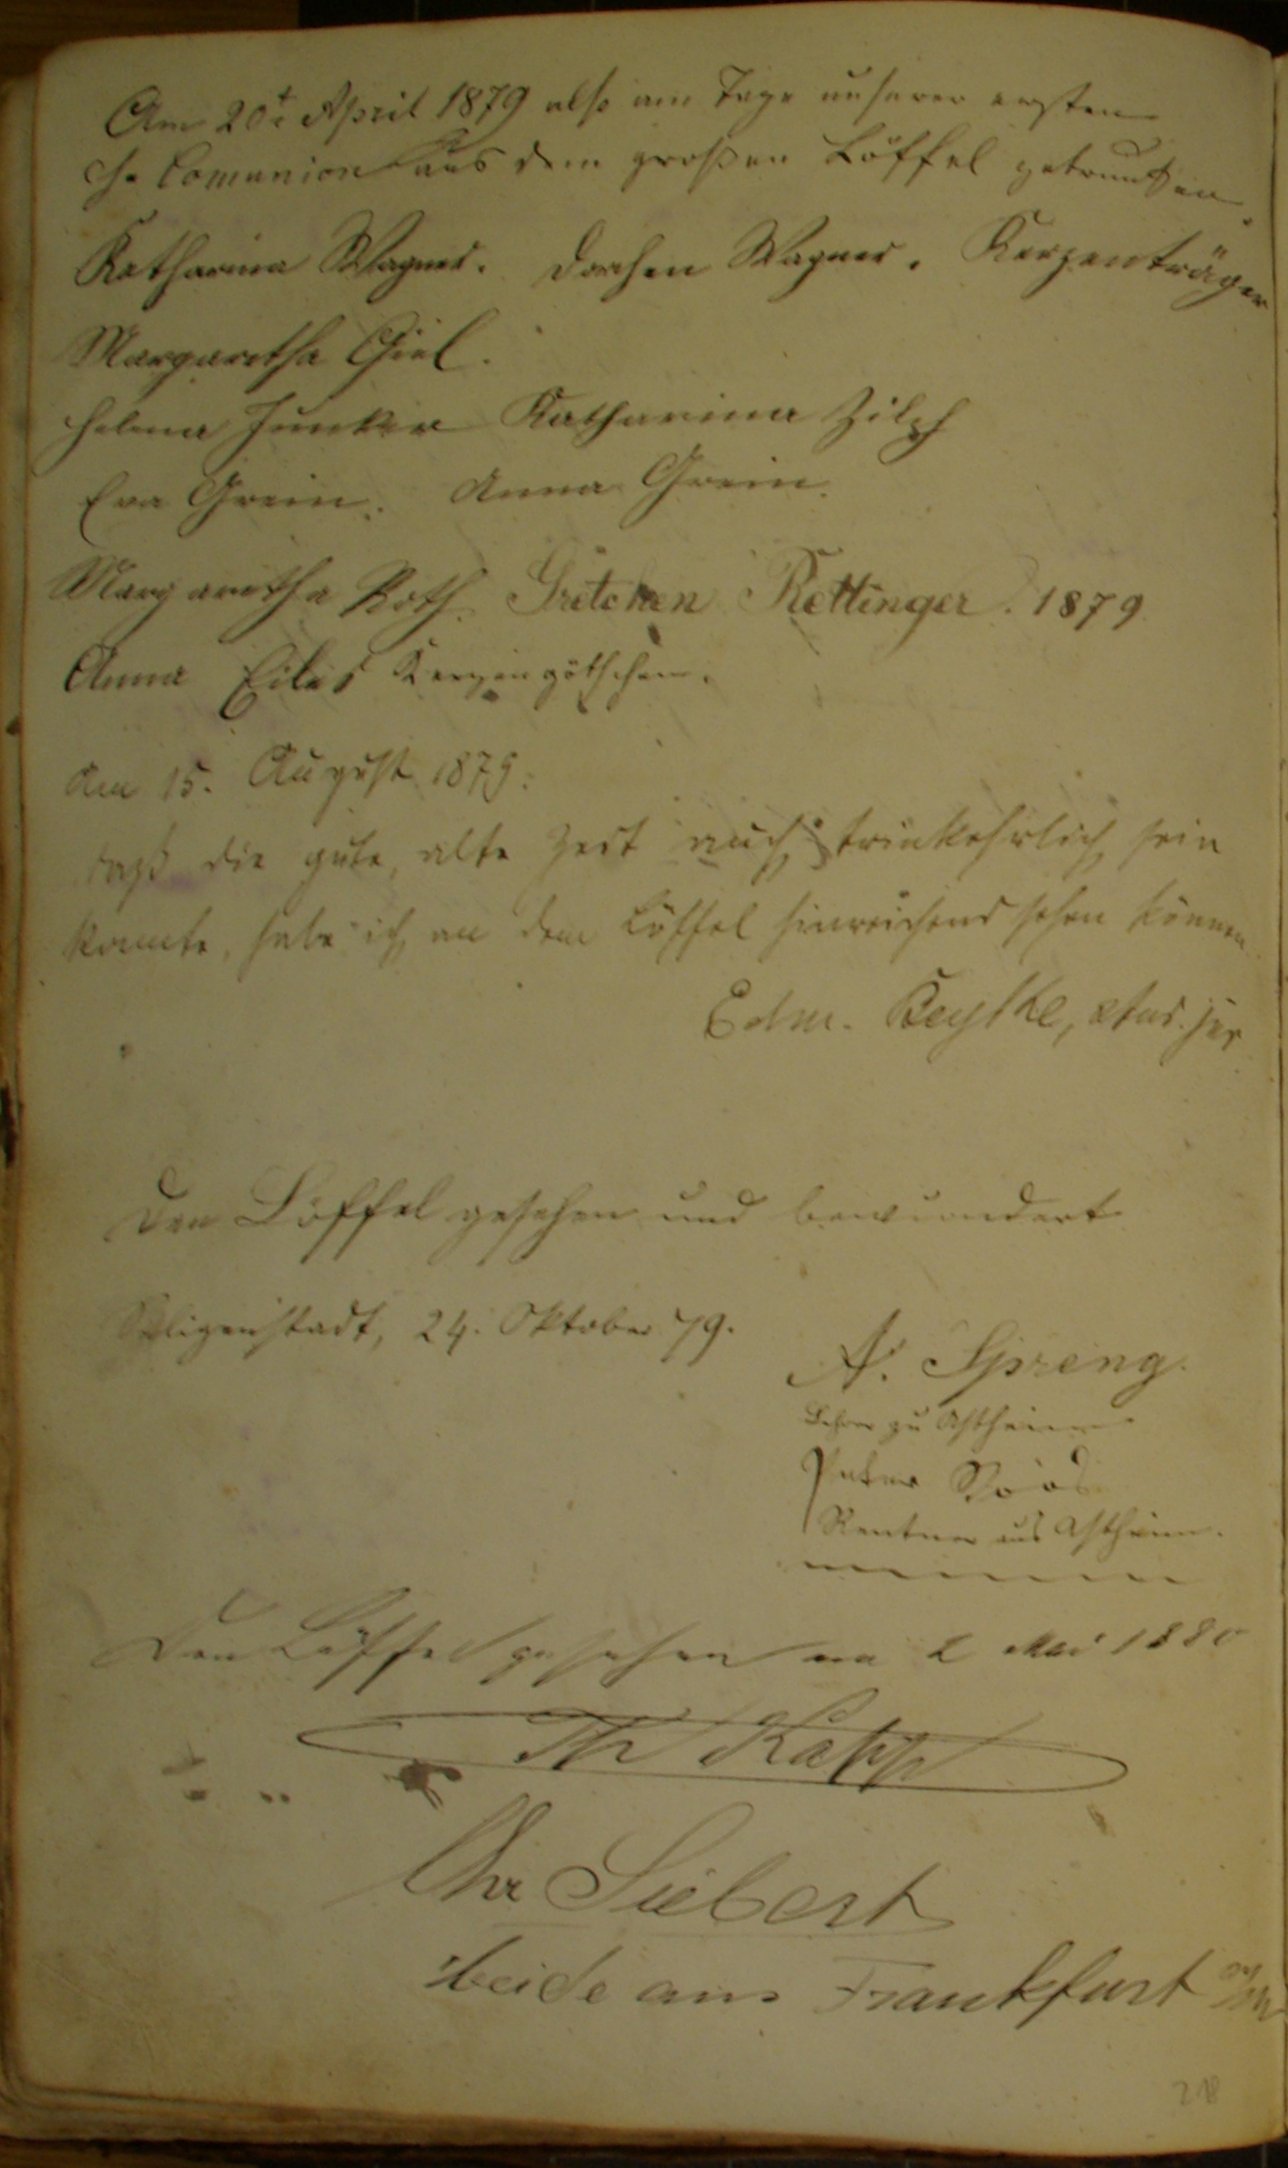 Am 20t April 1879 also am Tage unserer ersten
h. Comunion aus dem großen Löffel getrunken.
Katharina Wagner. Dorchen Wagner. Kerzenträger
Margaretha Giel.
Helena Junker Katharina Zilch
Eva Grein. Anna Grein.
Margaretha Roth. Gretchen Rettinger. 1879
Anna Eiles Kerzengötchen.
Am 15. August 1879.
daß die gute, alte Zeit auch trinkehrlich sein
konnte, habe ich an dem Löffel hinreichend sehen können
Edm. stud. jur
Den Löffel gesehen und bewundert
Seligenstadt, 24. Oktober 79.
A. Spreng.
Lehrer zu Astheim
Peter
Rentner aus Astheim.
Den Löffel gesehen am 2 Mai 1880
Th Kapp
Chr Siebert
beide aus Frankfurt a/M
218